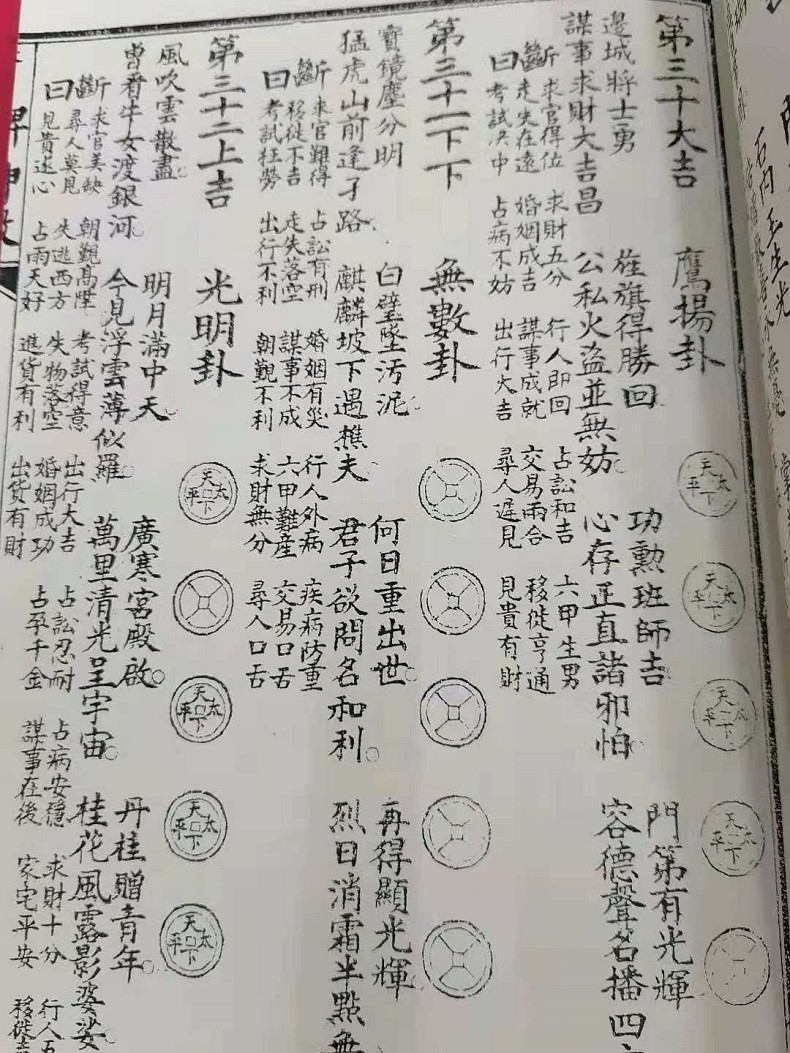 石内玉生光
第三十大吉 鷹揚卦
天下太平
天下太平
天下太平
天下太平
邊城將士勇 旌旗得勝回 功勳班師吉 門第有光輝
謀事求財大吉昌 公私火盜並無妨 心存正直諸邪怕 容德聲名播四
斷曰
求官得位 求財五分 行人即回 占訟和吉 六甲生男
走失在遠 婚姻成吉 謀事成就 交易兩合 移徙亨通
考試决中 占病不妨 出行大吉 尋人遲見 見貴有財
第三十一下下 無數卦
寶鏡塵分明 白璧墜汚泥 何日重出世 再得顯光輝
猛虎山前逢子路 麒麟坡下遇樵夫 君子欲問名和利 烈日消霜半點無
斷曰
求官難得 占訟有刑 婚姻有災 行人外病 疾病防重
移徙不吉 走失落空 謀事不成 六甲難産 交易口舌
考試枉勞 出行不利 朝覲不利 求財無分 尋人口舌
第三十二上吉 光明卦
天下太平
天下太平
天下太平
天下太平
風吹雲散盡 明月滿中天 廣寒宮殿啟 丹桂贈青年
曾看牛女渡銀河 今見浮雲薄似羅 萬里清光呈宇宙 桂花風露影婆娑
斷曰
求官美缺 朝覲高陞 考試得意 出行大吉 占訟忍耐 占病安穩 求財十分 行人五
尋人莫見 失逃西方 失物落空 婚姻成功 占孕千金 謀事在後 家宅平安 移徙
見貴遂心 占雨天好 進貨有利 出貨有財
神數